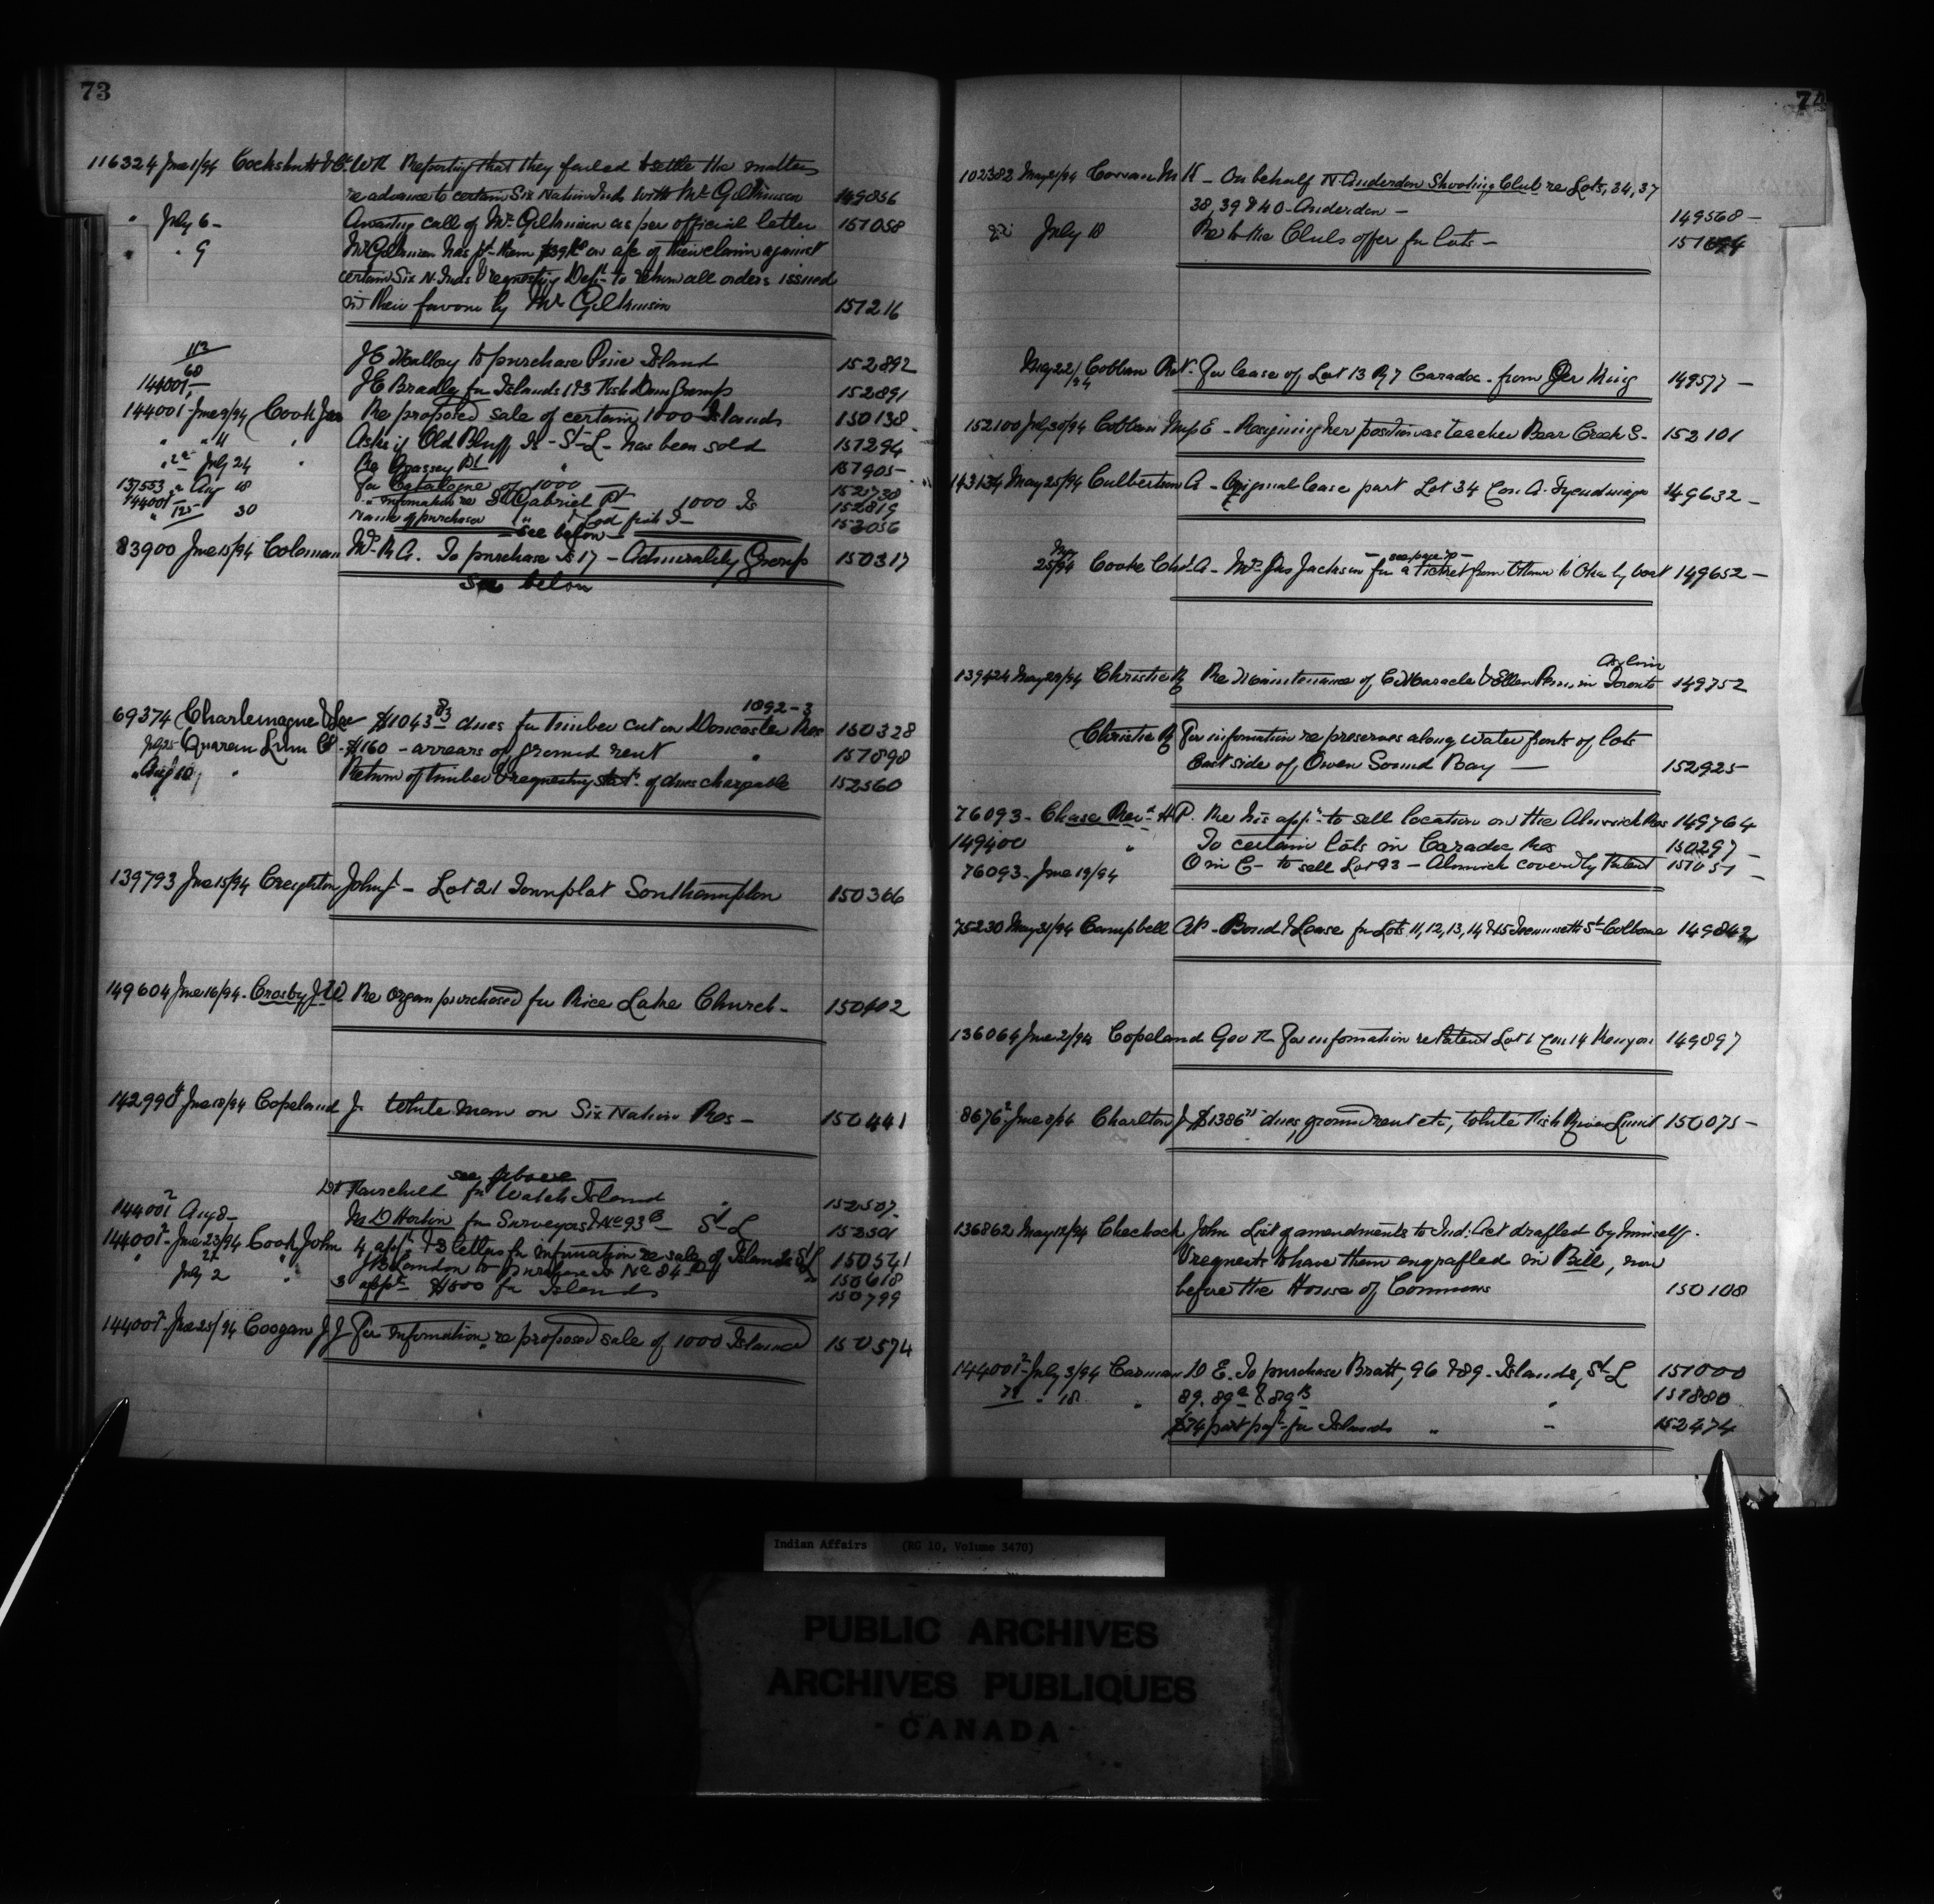 73
116324 June 1/94 Cockshutt & Co. W H Reporting that they failed to settle the matters
re advance to certain Six Nation Inds with Mr Gilkinson 149856
" July 6 - Awaiting call of Mr Gilkinson as per official letter 151058
" " 9 Mr Gilkinson has pd them on a/c of their claim against
certain Six N. Inds & requesting Dept to return all orders issued
in their favour by Mr Gilkinson 151216
113
J E Malloy to purchase Pine Island 152892
60
144001 J E Bradley for Islands 1 & 3 Fish Dam Group 152891
144001 June 9/94 Cook Jno Re proposed sale of certain 1000 Islands 150138
" " 11 " Asks if Old Bluff Is - St L - has been sold 151294
" July 24 " Re Grassey Pt " 151905
137553 " Aug 18 For Catalogue of 1000 152738
144001 " information re St Gabriel Pt 1000 Is 152819
" 125 30 Name of purchaser 153056
- see below -
83900 June 15/94 Coleman Mrs R A. To purchase Is 17 - Admirality Group 150317
See below
1892-3
69374 Charlemagne & Lac $1043 83 dues for timber cut on Doncaster Res 150328
July 25 Quareau Lum Co. $160 - arrears of ground rent " 151898
" Aug 10 " Return of timber & requesting statt of dues chargeable 152560
139793 June 15/94 Creighton John - Lot 21 Townplat Southampton 150366
149604 June 16/94 - Crosby J W Re Organ purchased for Rice Lake Church - 150402
142990 June 18/94 Copeland J. White men on Six Nation Res - 150441
see above
Dr Fairchild for Watch Island " 152507
144001 2 Aug 8 - M D Horton for Surveyors I No 93 B - St L 152501
144001 2 June 23/94 Cook John 4 appns & 3 letters for information re sale of Islands St L 150541
" 27 " J B Landon to purchase Is No 84 " 150618
July 2 " 3 appns $1500 for Islands 150799
144001 2 June 25/94 Coogan J J For information re proposed sale of 1000 Islands 150574
74
102382 May 21/94 Cowan M K - On behalf N. Anderdon Shooting Club re Lots, 34, 37
38, 39 & 40 - Anderdon - 149568 -
July 18 Re to the Clubs offer for lots - 151694
May 22/94 Coblan Robt. For lease of Lot 13 R 7 Caradoc - from Geo King 149577 -
152100 July 30/94 Coblan Mrs E - Resigning her position as teacher Bear Creek S - 152101
143134 May 25/94 Culbertson A - Original lease part Lot 34 Con. A. Tyendinaga 149632 -
- see page 70 -
May 25/94 Cooke Chf. A - Mrs Jas Jackson for a Ticket from Ottawa to Oka by boat 149652 -
Asylum
139424 May 29/94 Christie R Re Maintenance of C Maracle & Ellen in Toronto 149752
Christie R For information re preserves along water fronts of lots
East side of Owen Sound Bay - 152925
76093 - Chase Revd H P. Re his appn to sell location on the Alnwick Res 149764
149400 " To certain lots in Caradoc Res 150297 -
76093 - June 19/94 O in C - to sell Lot 93 - Alnwick covered by Patent 151051 -
75230 May 31/94 Campbell A P - Bond & Lease for Lots 11, 12, 13, 14 & 15 St Colborne 149842
136064 June 2/94 Copeland Geo R For information re Patent Lot 6 Con 14 Kenyon 149897
8676 2 June 8/94 Charlton J $1386 dues, ground rent etc, White Fish River Limit 150075 -
136862 May 12/94 Chechock John List of amendments to Ind: Act drafted by himself.
& requests to have them engrafted in Bill, now
before the House of Commons 150108
144001 2 July 3/94 Carman W E. To purchase Bratt, 96 & 89 - Islands, St L 151000
" 18 " 89. 89 a & 89 B " 151880
$74 part payt for Islands " - 152474
Indian Affairs (RG 10, Volume 3470)
PUBLIC ARCHIVES
ARCHIVES PUBLIQUES
CANADA